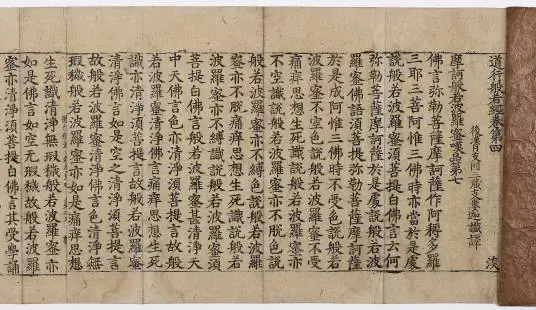 道行般若經卷第四 淡
後漢月支國三藏支婁迦讖譯
摩訶般若波羅蜜嘆品第七
佛言弥勒菩薩摩訶薩作阿耨多羅
三耶三菩阿惟三佛時亦當於是處
說般若波羅蜜須菩提白佛言云何
弥勒菩薩摩訶薩於是處說般若波
羅蜜佛語須菩提弥勒菩薩摩訶薩
於是成阿惟三佛時不受色說般若
波羅蜜不空色說般若波羅蜜不受
痛痒思想生死識說般若波羅蜜亦
不空識說般若波羅蜜亦不脫色說
般若波羅蜜亦不縛色說般若波羅
蜜亦不脫痛痒思想生死識說般若
波羅蜜亦不縛識說般若波羅蜜須
菩提白佛言般若波羅蜜甚清淨天
中天佛言色亦清淨須菩提言故般
若波羅蜜清淨佛言痛痒思想生死
識亦清淨須菩提言故般若波羅蜜
清淨佛言如是空之清淨須菩提言
故般若波羅蜜清淨佛言色清淨無
瑕穢般若波羅蜜亦如是痛痒思想
生死識清淨無瑕穢般若波羅蜜亦
如是佛言如空无瑕穢故般若波羅
蜜亦清淨須菩提白佛言其受學誦